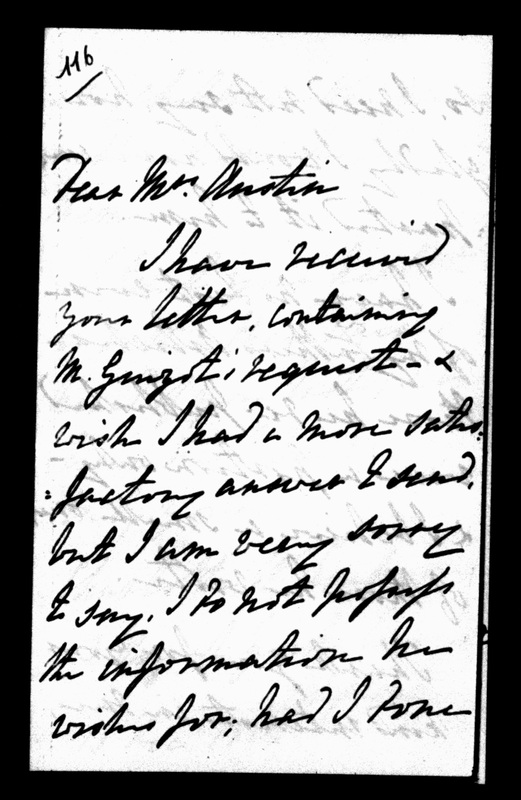 116
Dear Mrs. Austin
I have received
your letter, containing
M. Guizot's request - &
wish I had a more satis:
:factory answer to send,
but I am very sorry
to say, I do not possess
the information he
wishes for; had I done